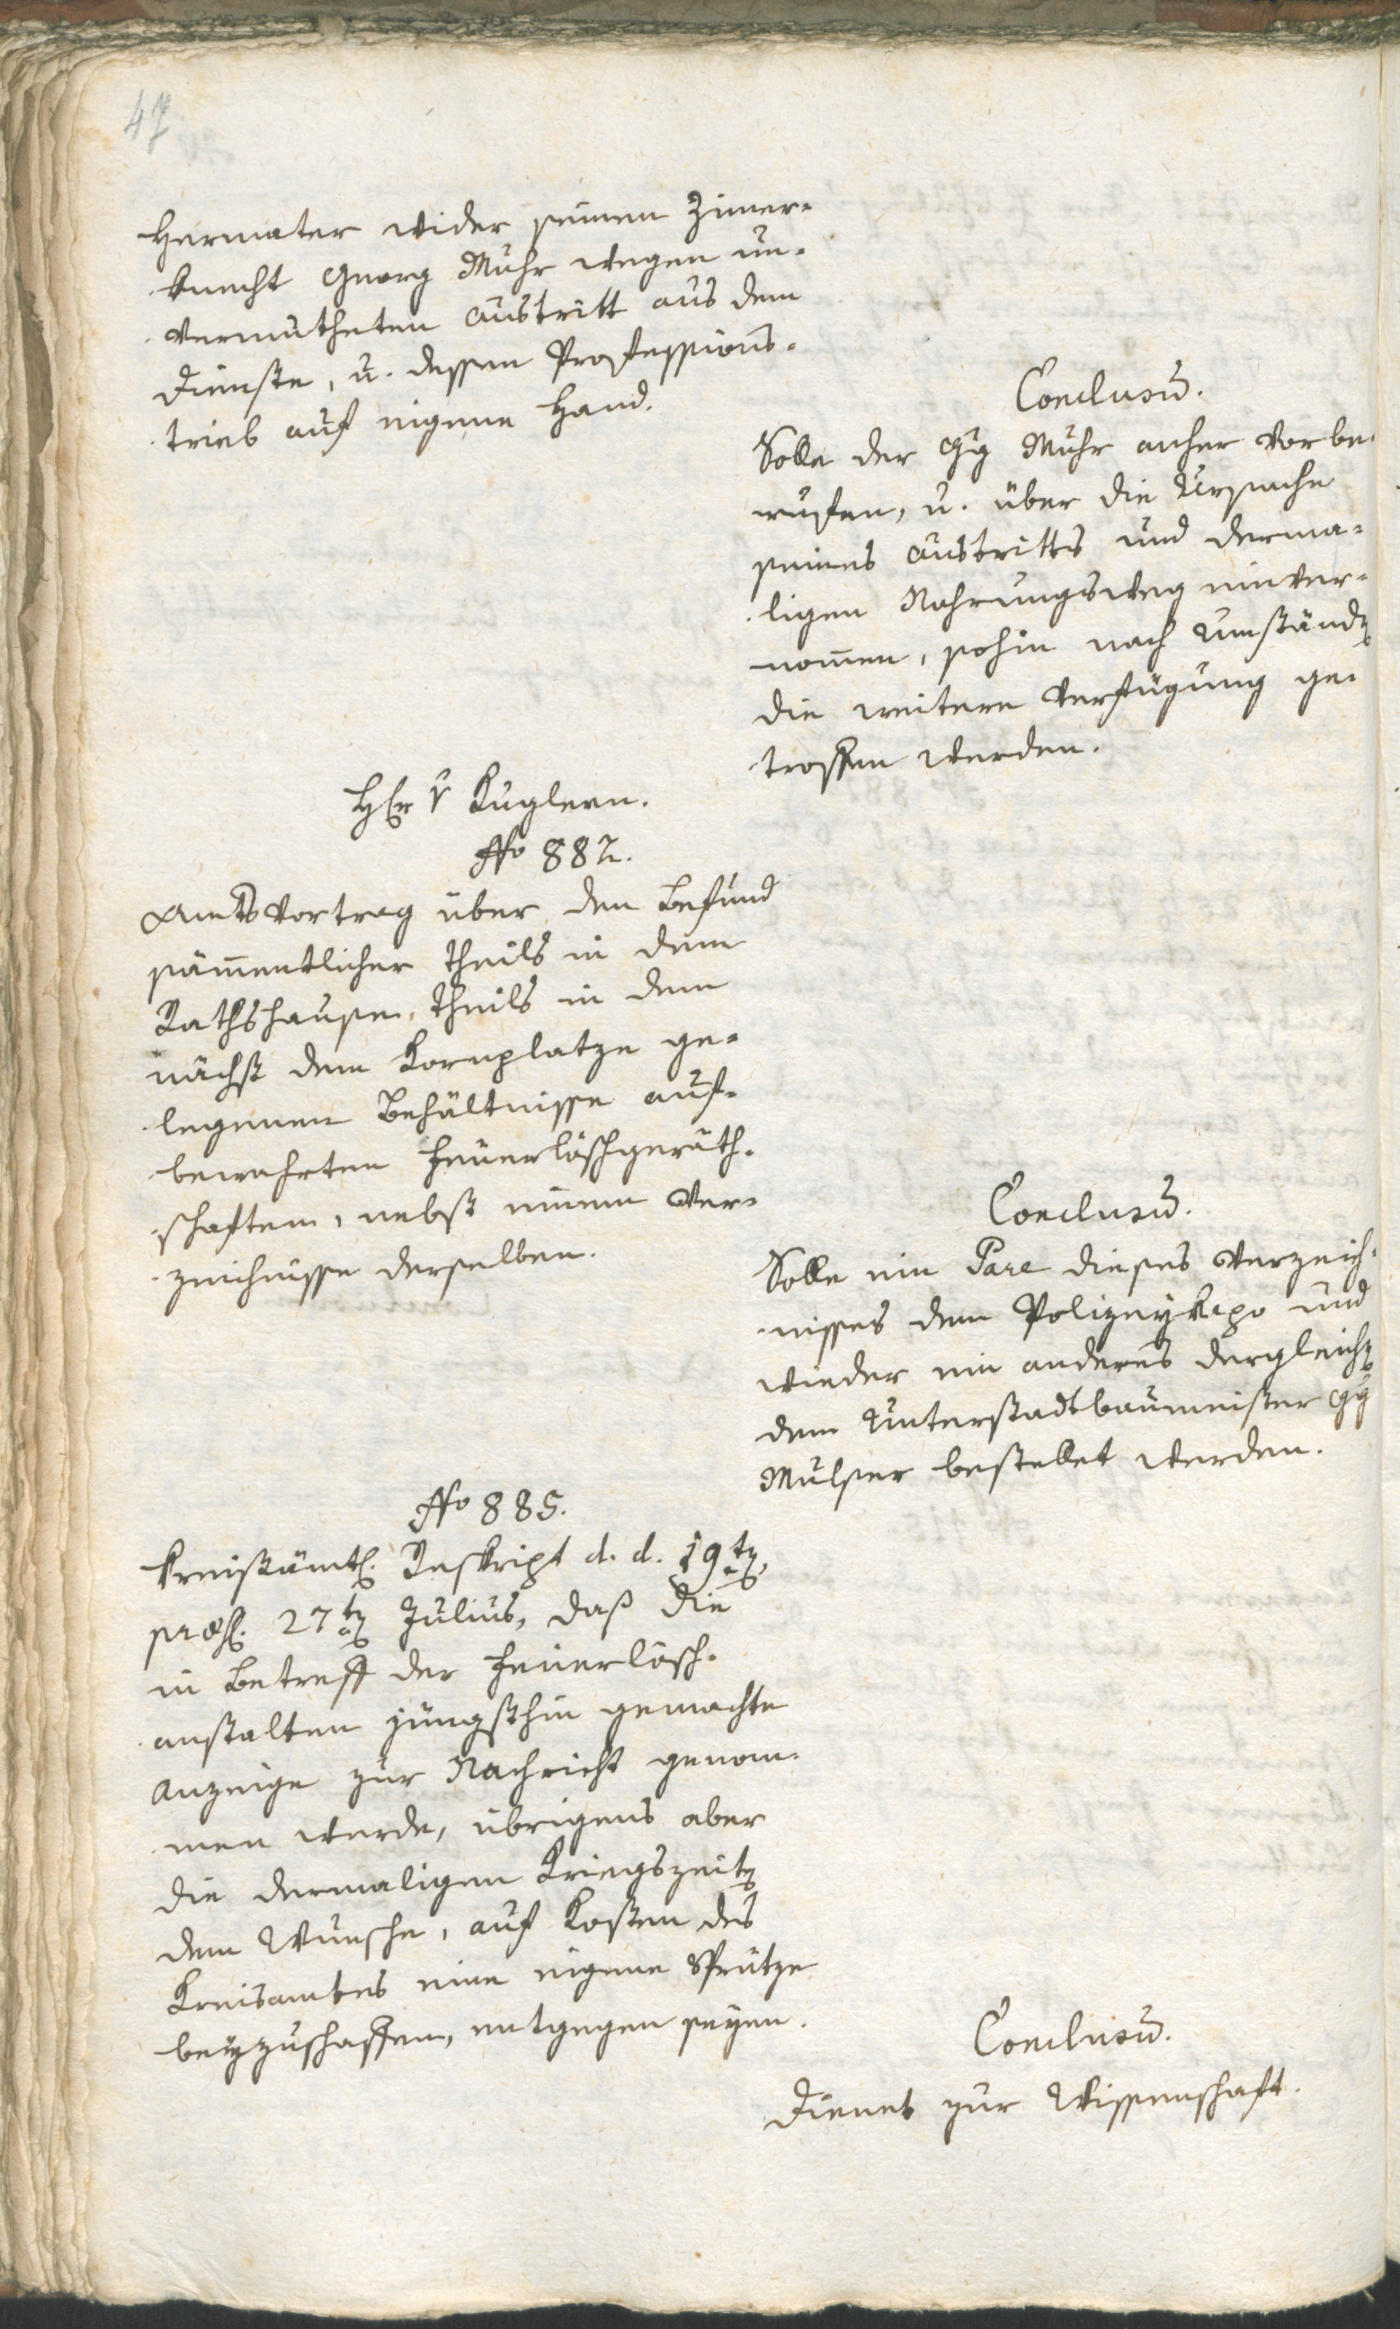 47
Hermater wider seinen Zimer-
knecht Georg Muhr wegen un-
vermutheten Austritt aus dem
Dienste, u. dessen Professions-
trieb auf eigene Hand.
Conclusū.
Solle der Gg Muhr anher vorbe-
ruffen, u. über die Ursache
seines Austritts und derma-
ligen Nahrungsweg einver-
nom̄en, sohin nach Umständen
die weitere Verfügung ge-
troffen werden.
Hr v Kuglern.
No 882.
Amts Vortrag über den Befund
säm̄entlicher theils in dem
Rathshause, theils in dem
nächst dem Kornplatze ge-
legenen Behältnisse auf-
bewahrten Feuerlöschgeräth-
schaften, nebst einem Ver-
zeichnisse derselben.
Conclusū.
Solle ein Pare dieses Verzeich-
nisses dem Polizeykapo und
wieder ein anderes dergleichen
dem Unterstadtbaumeister Gg
Mulser bestellet werden.
No 885.
Kreisämtl. Reskript d. d. 19ten,
præs. 27ten Julius, daß die
in Betreff der Feuerlösch-
anstalten jüngsthin gemachte
Anzeige zur Nachricht genom-
men werde, übrigens aber
die dermaligen Kriegszeiten
dem Wunsche, auf Kosten des
Kreisamtes eine eigene Sprütze
beyzuschaffen, entgegen seyen.
Conclusū.
Dienet zur Wissenschaft.